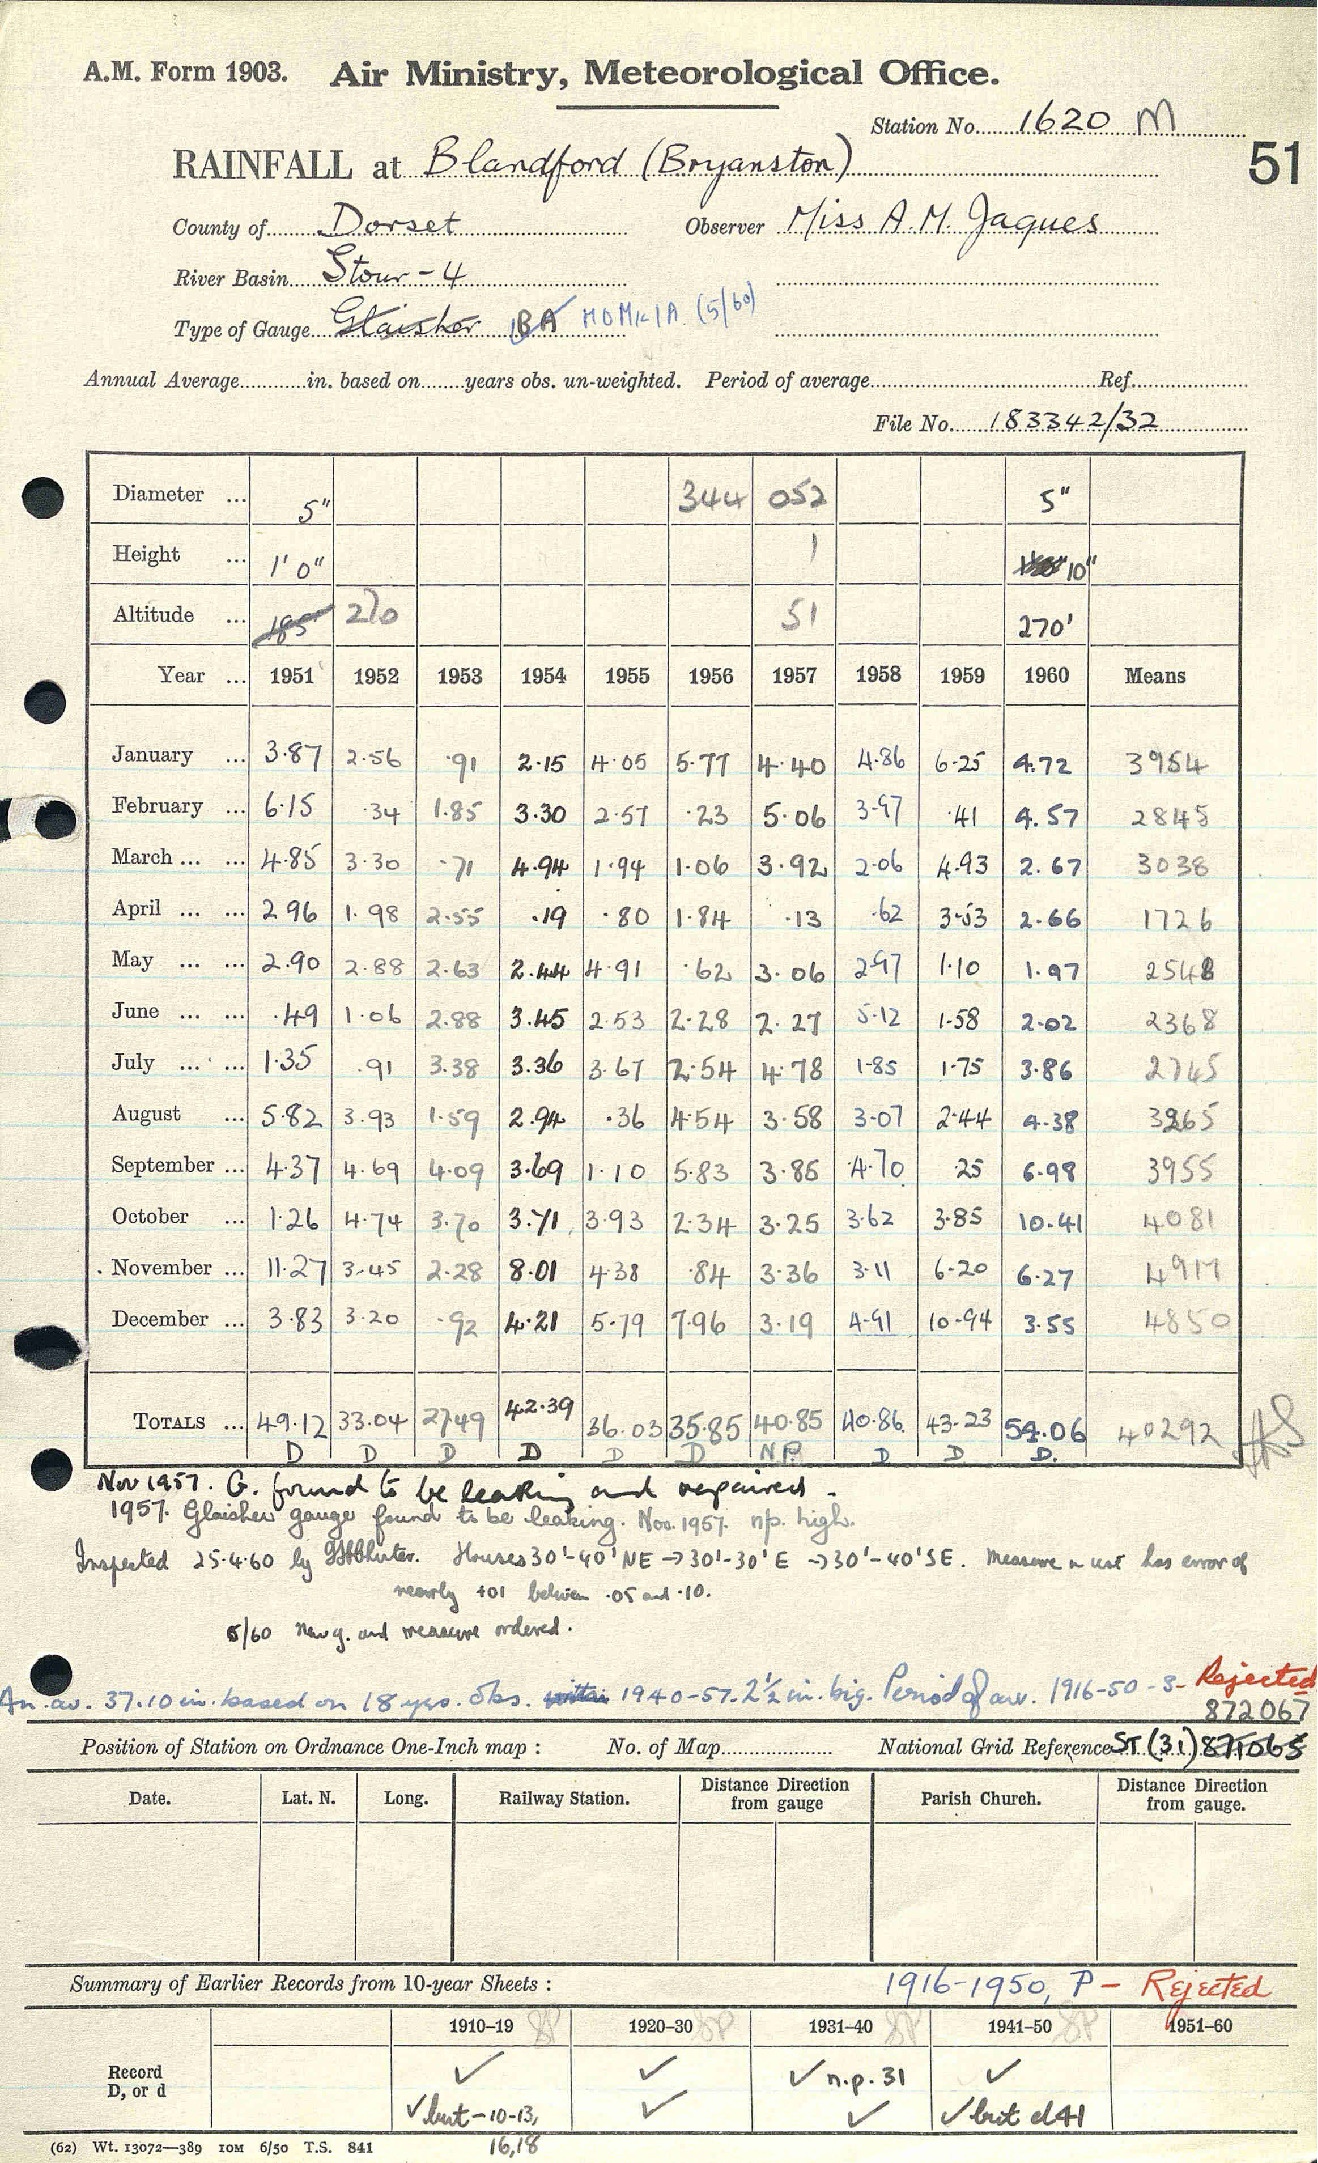 A.M. Form 1903. Air Ministry, Meteorological Office.
Station No. 1620 M
RAINFALL at Blandford (Bryanston)
51
County of Dorset Observer Miss A.M. Jaques
River Basin Stour - 4
Type of Gauge Glaisher BA MO Mk IA (5/60)
Annual Average in. based on years obs. un-weighted. Period of average Ref.
File No. 183342/32
Diameter ... 5" 344 052 5"
Height ... 1' 0" 1 10"
Altitude ... 185' 270 51 270'
Year ... 1951 1952 1953 1954 1955 1956 1957 1958 1959 1960 Means
January ... 3.87 2.56 .91 2.15 4.05 5.77 4.40 4.86 6.25 4.72 3954
February ... 6.15 .34 1.85 3.30 2.57 .23 5.06 3.97 .41 4.57 2845
March ... ... 4.85 3.30 .71 4.94 1.94 1.06 3.92 2.06 4.93 2.67 3038
April ... ... 2.96 1.98 2.55 .19 .80 1.84 .13 .62 3.53 2.66 1726
May ... ... 2.90 2.88 2.63 2.44 4.91 .62 3.06 2.97 1.10 1.97 2548
June ... ... .49 1.06 2.88 3.45 2.53 2.28 2.27 5.12 1.58 2.02 2368
July ... ... 1.35 .91 3.38 3.36 3.67 2.54 4.78 1.85 1.75 3.86 2745
August ... 5.82 3.93 1.59 2.94 .36 4.54 3.58 3.07 2.44 4.38 3265
September ... 4.37 4.69 4.09 3.69 1.10 5.83 3.85 4.70 .25 6.98 3955
October ... 1.26 4.74 3.70 3.71 3.93 2.34 3.25 3.62 3.85 10.41 4081
November ... 11.27 3.45 2.28 8.01 4.38 .84 3.36 3.11 6.20 6.27 4917
December ... 3.83 3.20 .92 4.21 5.79 7.96 3.19 4.91 10.94 3.55 4850
TOTALS ... 49.12 33.04 27.49 42.39 36.03 35.85 40.85 40.86 43.23 54.06 40292
D D D D D D N.P. D D D.
Nov 1957. G. found to be leaking and repaired.
1957. Glaisher gauge found to be leaking. Nov. 1957. np. high.
Inspected 25.4.60 by Houses 30'-40' NE → 30'-30' E → 30'-40' SE. Measure in use has error of
nearly +01 between .05 and .10.
5/60 New g. and measure ordered.
An. av. 37.10 in. based on 18 yrs. obs. 1940-57. 2½ in. big. Period of av. 1916-50 - S - Rejected
872067
Position of Station on Ordnance One-Inch map : No. of Map National Grid Reference ST (31) 871065
Date. Lat. N. Long. Railway Station. Distance Direction from gauge Parish Church. Distance Direction from gauge.
Summary of Earlier Records from 10-year Sheets : 1916-1950, P - Rejected
1910–19 SP 1920–30 SP 1931–40 SP 1941–50 SP 1951–60
Record ✓ ✓ ✓ n.p. 31 ✓
D, or d ✓ but - 10-13, ✓ ✓ ✓ but d 41
16, 18
(62) Wt. 13072—389 10M 6/50 T.S. 841